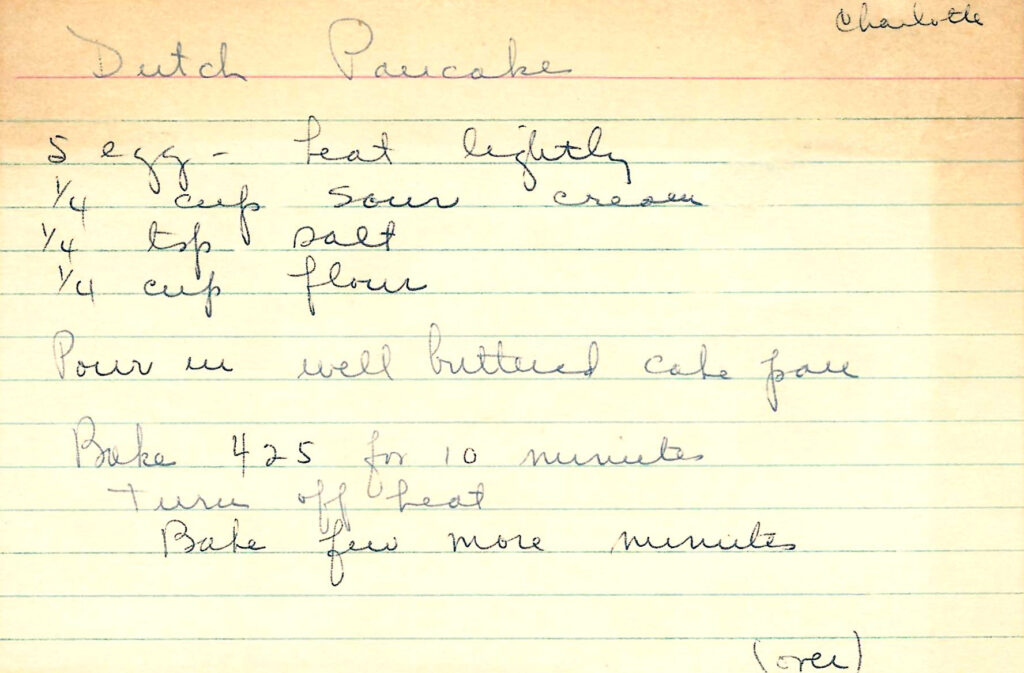 Charlotte
Dutch Pancake
5 egg - beat lightly
1/4 cup sour cream
1/4 tsp salt
1/4 cup flour
Pour in well buttered cake pan
Bake 425 for 10 minutes
Turn off heat
Bake few more minutes
(over)